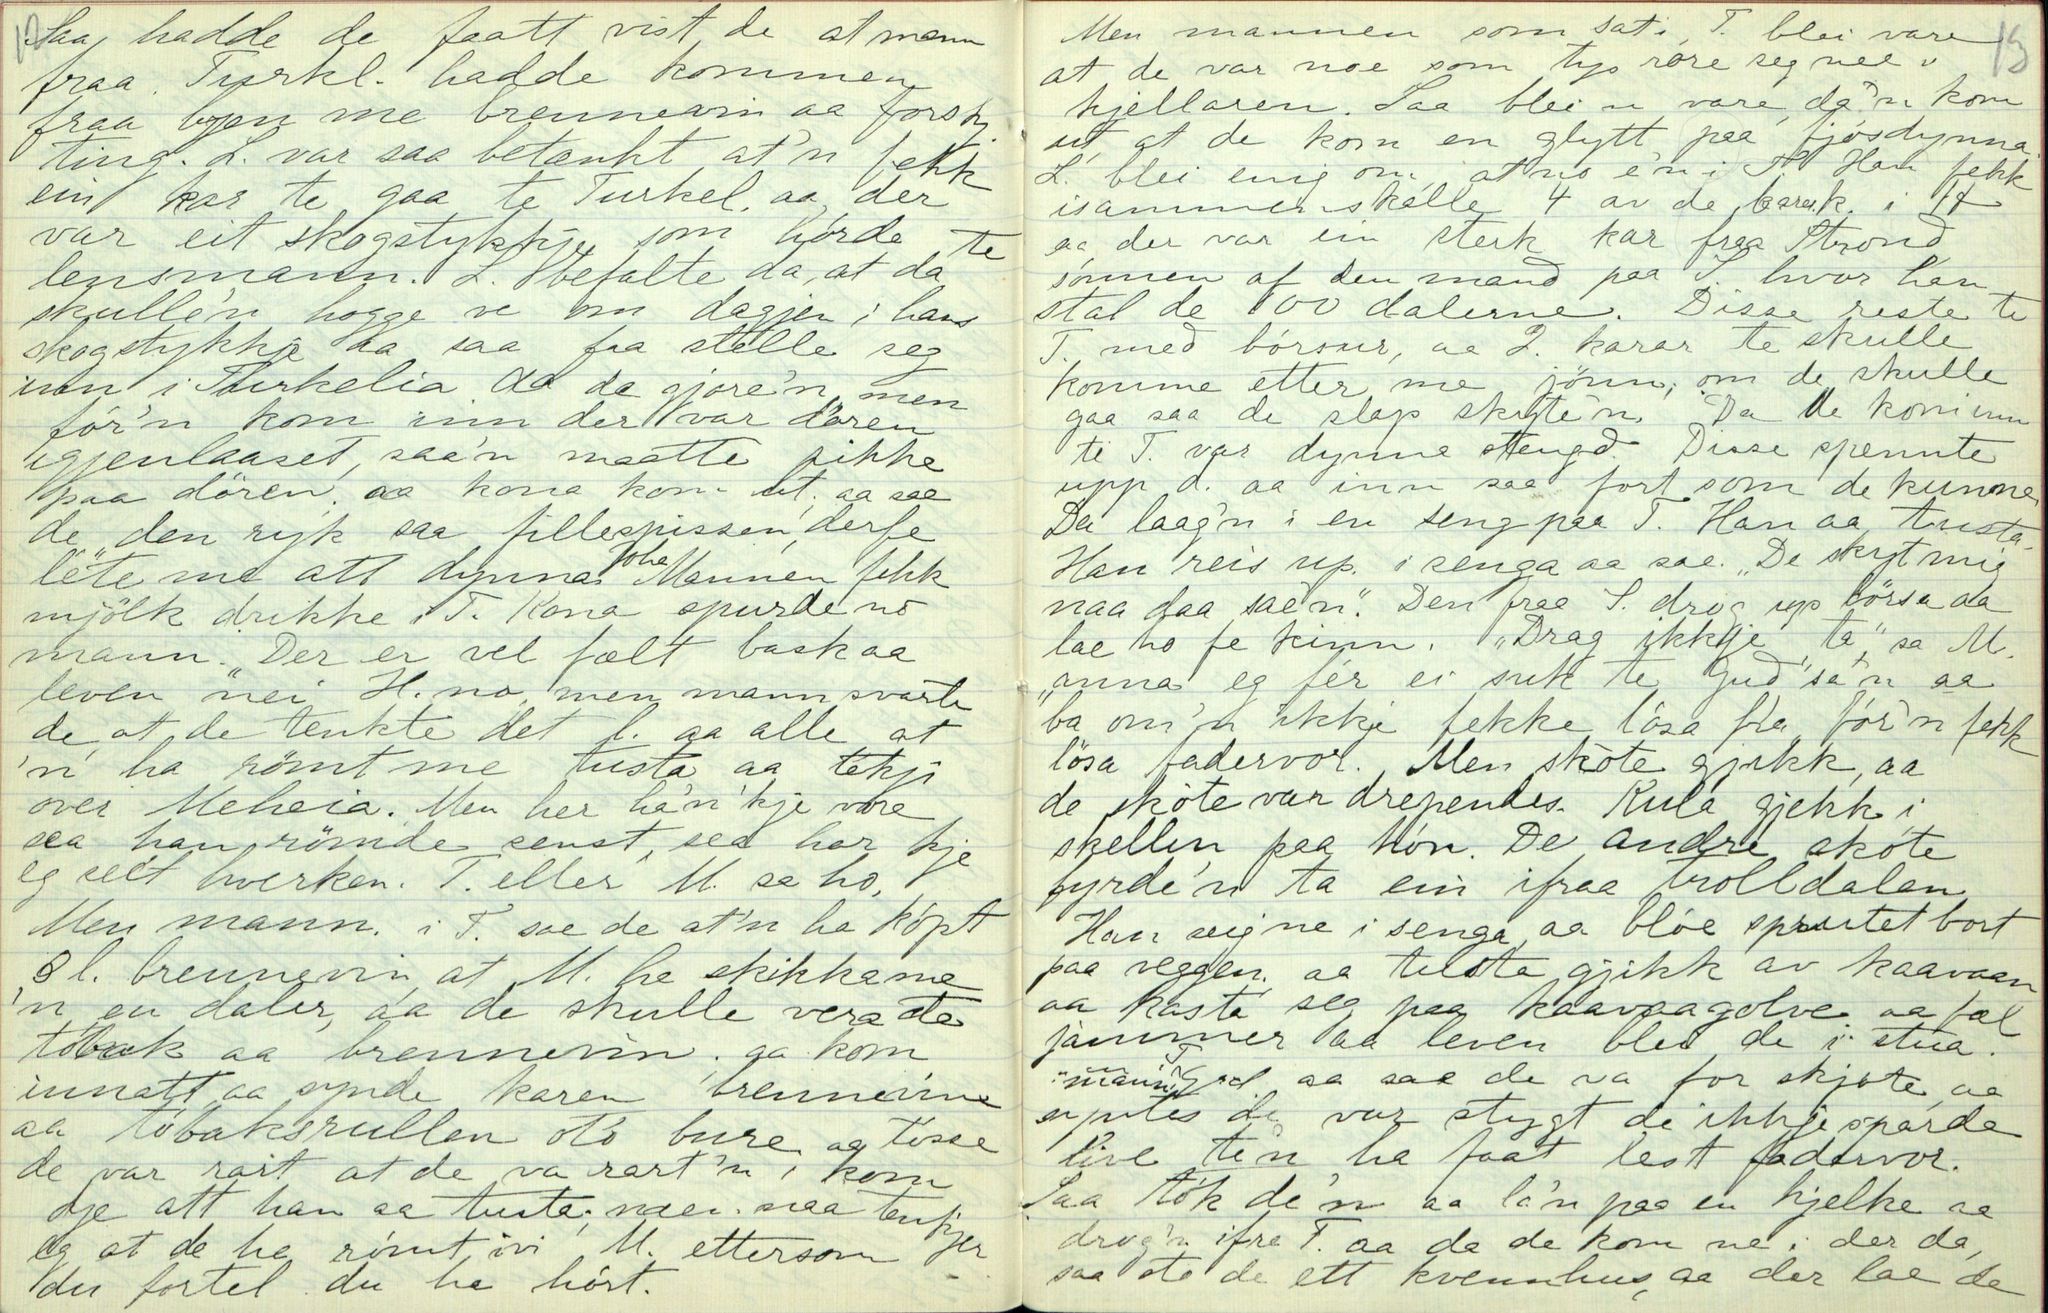 12
Saa hadde de faatt vist de at mann
fraa Turkl. hadde kommen
fraa byen me brennevin aa forskj.
ting. L. var saa betænkt at'n fekk
ein kar te gaa te Turkel. aa der
var eit skogstykkje som hørde te
lensmann. L. befalte da, at da
skulle'n hogge ve om dagjen i hans
skogstykkje aa saa faa stelle seg
inn i Turkelia da de gjore'n, men
før'n kom inn der var døren
igjenlaaset, saa'n maatte pikke
paa døren, aa kona kom ut, aa sae
de den ryk saa fillespissen, derfe
lête me att dynna. Joha Mannen fekk
mjölk drikke i T. Kona spurde no
mann. "Der er vel fælt bask aa
leven" nei H. no, men mann svarte
de, at de tenkte det l. aa alle at
'n ha römt me tusta aa tekji
over Meheia. Men her ha'n'kje vore
saa han römde senst, sea har kje
eg seet hverken. T. eller M. sa ho,
Men mann. i T. sae de at'n ha köpt
8 l. brennevin, at M. ha skikka me
'n en daler, aa de skulle vera te
tobak aa brennevin. aa kom
innatt aa synde karen brennevine
aa tobaksrullen oto bure, aa tösse
de var rart at de va rart'n i kom
dje att han aa tusta; naei. naa tenkjer
eg at de ha römt ivi M. ettersom
du fortel du ha hört.
13
Men mannen som sat i T. blei vare
at de var noe som tys röre seg nee i
kjellaren. Saa blei'n vare, da'n kom
ut at de kom en glytt paa fjösdynna.
L. blei enig om at no e'n i T. Han fekk
isammenskalle 4 av de karsk. i H
aa der var ein sterk kar fraa Strond
sönnen af den mand paa S. hvor han
stal de 100 dalerne. Disse reste te
T. med börsur, aa 2. karar te skulle
komme etter me jönn, om de skulle
gaa saa de slap skyte'n. Da de kom inn
te T. var dynne stengd. Disse spennte
upp d. aa inn saa fort som de kunne.
Da laag'n i en seng paa T. Han aa tusta.
Han reis up. i senga aa sae. "De skyt mig
naa daa sae'n". Den fraa S. drog up börsa aa
lae ho fe kinn. "Drag ikkje ta" sa M.
"anna eg fér ei suk te Gud" sa'n aa
ba om'n ikkje fekke lösa fra för'n fekk
lösa fadervor. Men skòte gjekk, aa
de skòte var drependes. Kula gjekk i
skellen paa hón. De andre skòte
fyrde'n ta ein ifraa Trolldalen
Han seig ne i senga, aa blóe sprutet bort
paa veggen. aa tusta gjikk av kaavaan
aa kasta seg paa kaavaagolve aa fæl
jammer aa leven blei de i stua.
mann i T. aa sae de va for skjote, aa
syntes de var stygt de ikkje sparde
live te'n ha faat lest fadervor.
Saa tok de'n aa la'n paa en kjelke aa
drog'n ifra T. aa da de kom ne i der da,
saa sto de ett kvennhus, aa der lae de